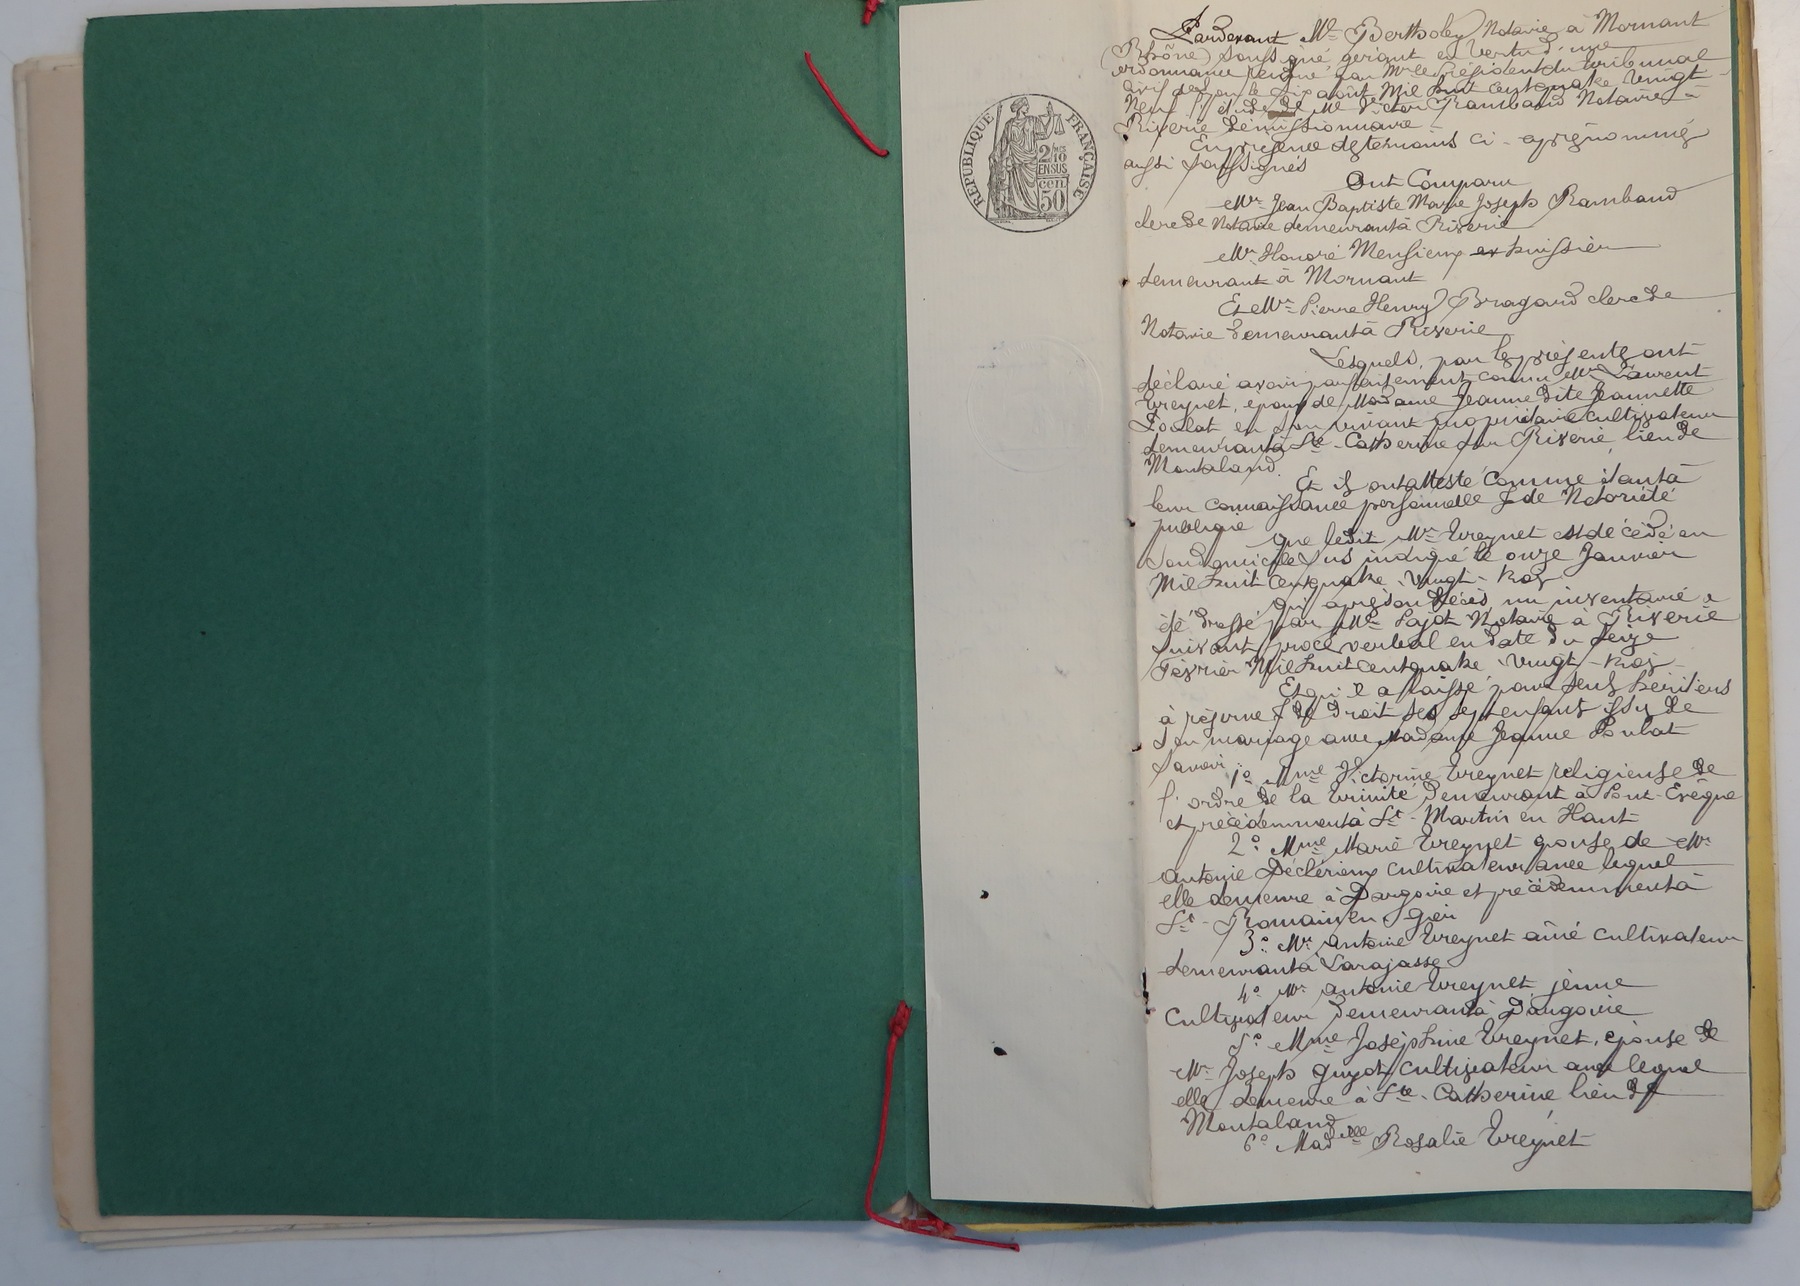 REPUBLIQUE FRANÇAISE
2/10
EN SUS
cen
50
Pardevant Me Bertholey Notaire à Mornant
(Rhône) soussigné, gérant en vertu d'une
ordonnance rendue par Mr le Président du tribunal
le six août Mil huit cent quatre vingt
Neuf l'étude de Me Victor Rambaud Notaire à
Riverie démissionnaire
En présence des témoins ci-après nommés
aussi soussignés
Ont Comparu
Mr Jean Baptiste Marie Joseph Rambaud
clerc de Notaire demeurant à Riverie
Mr Honoré Mensieux ex huissier
demeurant à Mornant
Et Mr Pierre Henry Bragard clerc de
Notaire demeurant à Riverie
Lesquels, par les présentes ont
déclaré avoir parfaitement connu Mr Laurent
Treynet, époux de Madame Jeanne dite Jeannette
Poulat en son vivant propriétaire cultivateur
demeurant à Ste-Catherine sur Riverie, lieu de
Montaland.
Et ils ont attesté comme étant à
leur connaissance personnelle & de Notoriété
publique
Que ledit Mr Treynet est décédé en
son domicile sus indiqué le onze Janvier
Mil huit cent quatre-vingt-trois
Qu'après son décès un inventaire a
été dressé par Me Pajot Notaire à Riverie
suivant procès verbal en date du seize
Février Mil huit cent quatre-vingt-trois
Et qu'il a laissé pour seuls héritiers
à réserve & de droit ses sept enfants issus de
son mariage avec Madame Jeanne Poulat
Savoir :
1o Mme Victorine Treynet religieuse de
l'ordre de la Trinité demeurant à Pont-Evêque
et précédemment à St-Martin en Haut
2o Mme Marie Treynet épouse de Mr
Antoine Déclérieux cultivateur avec lequel
elle demeure à Dargoire et précédemment à
St-Romain en Gier
3o Mr Antoine Treynet aîné cultivateur
demeurant à Larajasse
4o Mr Antoine Treynet jeune
cultivateur demeurant à Dargoire
5o Mme Joséphine Treynet, épouse de
Mr Joseph Guyot cultivateur avec lequel
elle demeure à Ste-Catherine lieu de
Montaland
6o Madelle Rosalie Treynet